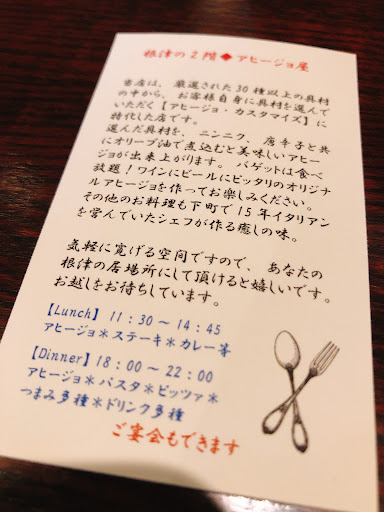 根津の2階◆アヒージョ屋
当店は、厳選された30種以上の具材
の中から、お客様自身に具材を選んで
いただく【アヒージョ・カスタマイズ】に
特化した店です。
選んだ具材を、ニンニク、唐辛子と共
にオリーブ油で煮込むと美味しいアヒー
ジョが出来上がります。バゲットは食べ
放題!ワインにビールにピッタリのオリジナ
ルアヒージョを作ってお楽しみください。
その他のお料理も下町で15年イタリアン
を営んでいたシェフが作る癒しの味。
気軽に寛げる空間ですので、あなたの
根津の居場所にして頂けると嬉しいです。
お越しをお待ちしています。
【Lunch】11:30~14:45
アヒージョ*ステーキ*カレー等
【Dinner】18:00~22:00
アヒージョ*パスタ*ピッツァ*
つまみ多種*ドリンク多種
ご宴会もできます